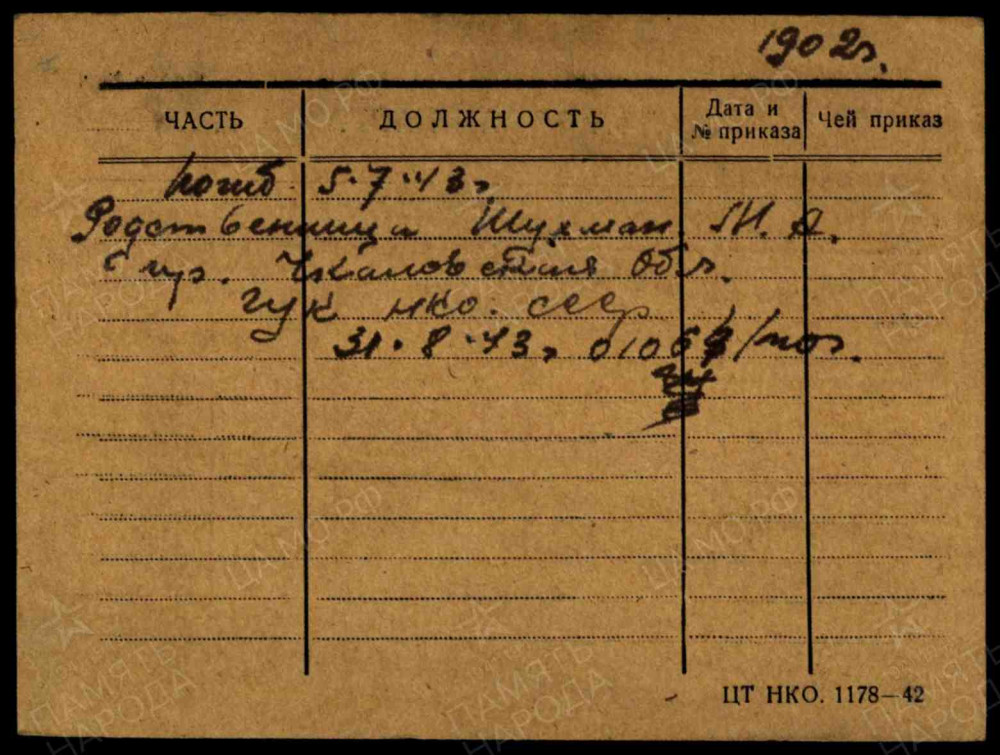 1902г.
ЧАСТЬ ДОЛЖНОСТЬ Дата и № приказа Чей приказ
погиб 5.7.43г
Родственница Шухман М. А.
Чкаловская обл.
ГУК НКО. СССР
31.8.43г 0106 /пог.
ЦТ НКО. 1178—42
ЦАМО.РФ
ПАМЯТЬ НАРОДА